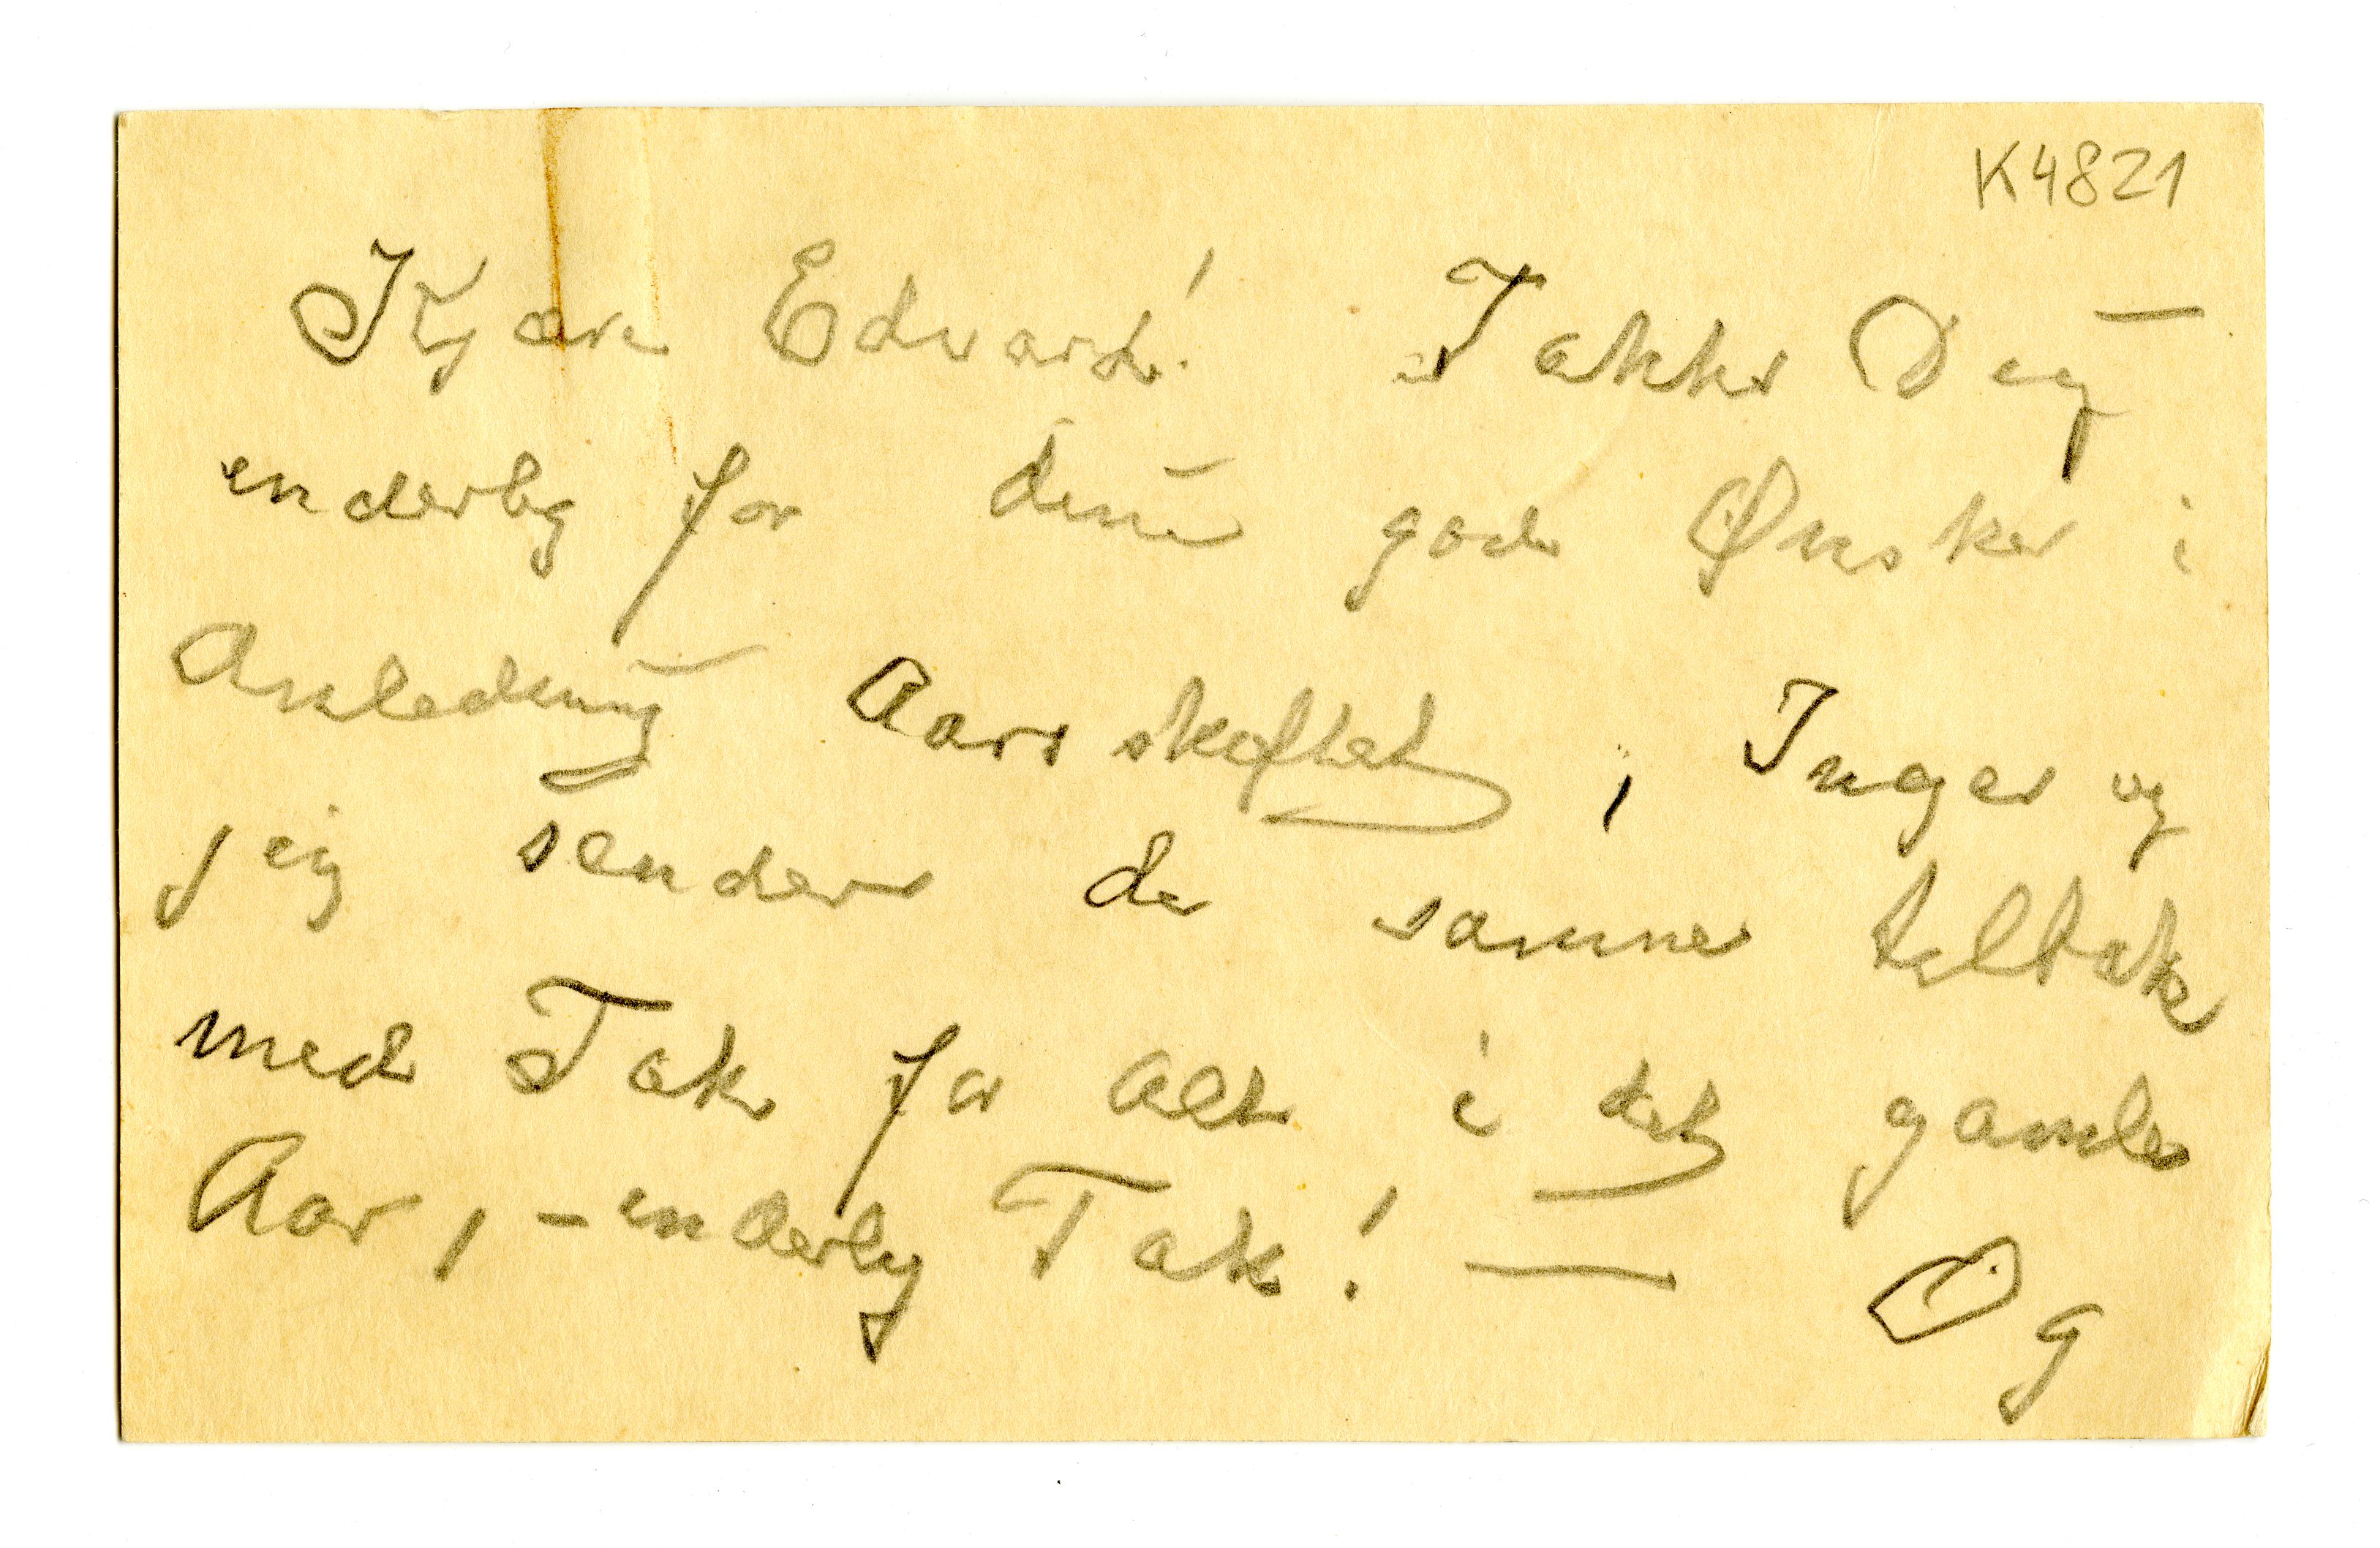 K4821
Kjære Edvard! Takke Deg
enderlig for dine gode Ønsker i
Anledning Aarsskeftet, Inger og
jeg sender de samme telbake
med Tak for alt i det gamle
Aar, – enderlig Tak! — Og